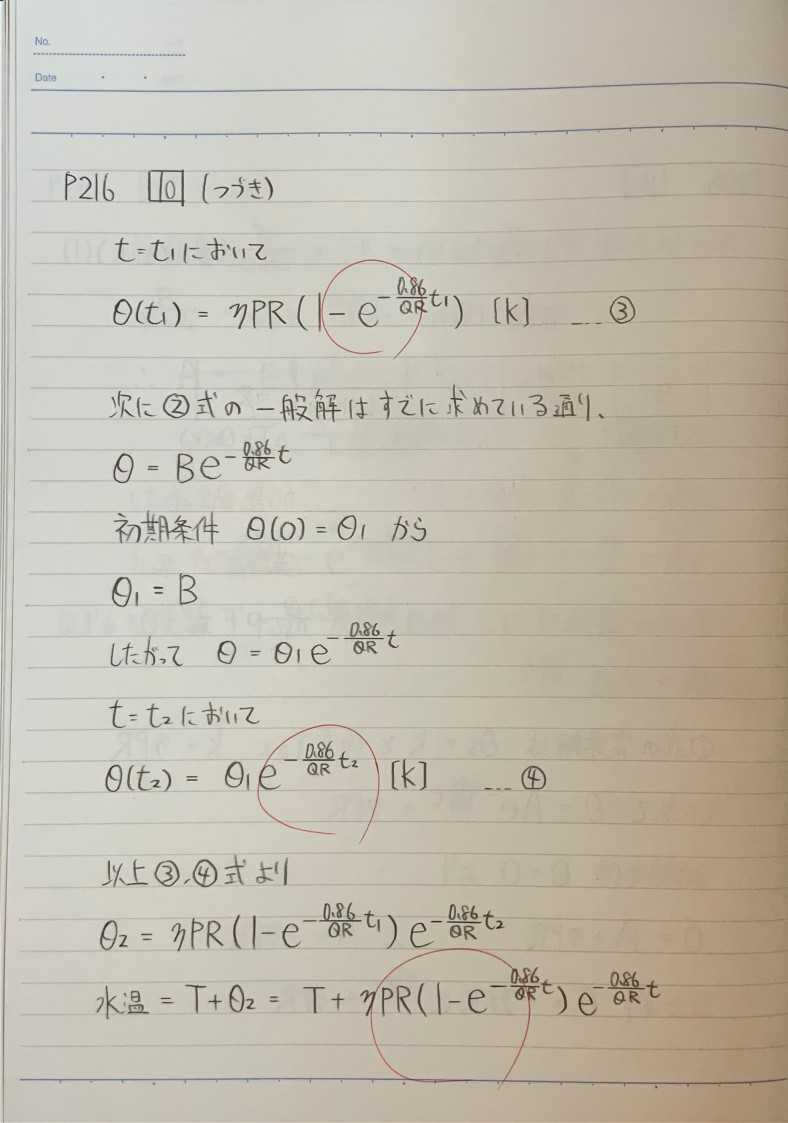 No.
Date
P216 10 (つづき)
t=t₁において
θ(t₁) = ηPR(1-e^{-\frac{0.86}{QR}t₁}) [k] ...③
次に②式の一般解はすでに求めている通り、
θ = Be^{-\frac{0.86}{QR}t}
初期条件 θ(0) = θ₁ から
θ₁ = B
したがって θ = θ₁e^{-\frac{0.86}{QR}t}
t=t₂において
θ(t₂) = θ₁e^{-\frac{0.86}{QR}t₂} [k] ...④
以上③、④式より
θ₂ = ηPR(1-e^{-\frac{0.86}{QR}t₁})e^{-\frac{0.86}{QR}t₂}
水温 = T+θ₂ = T+ηPR(1-e^{-\frac{0.86}{QR}t})e^{-\frac{0.86}{QR}t}